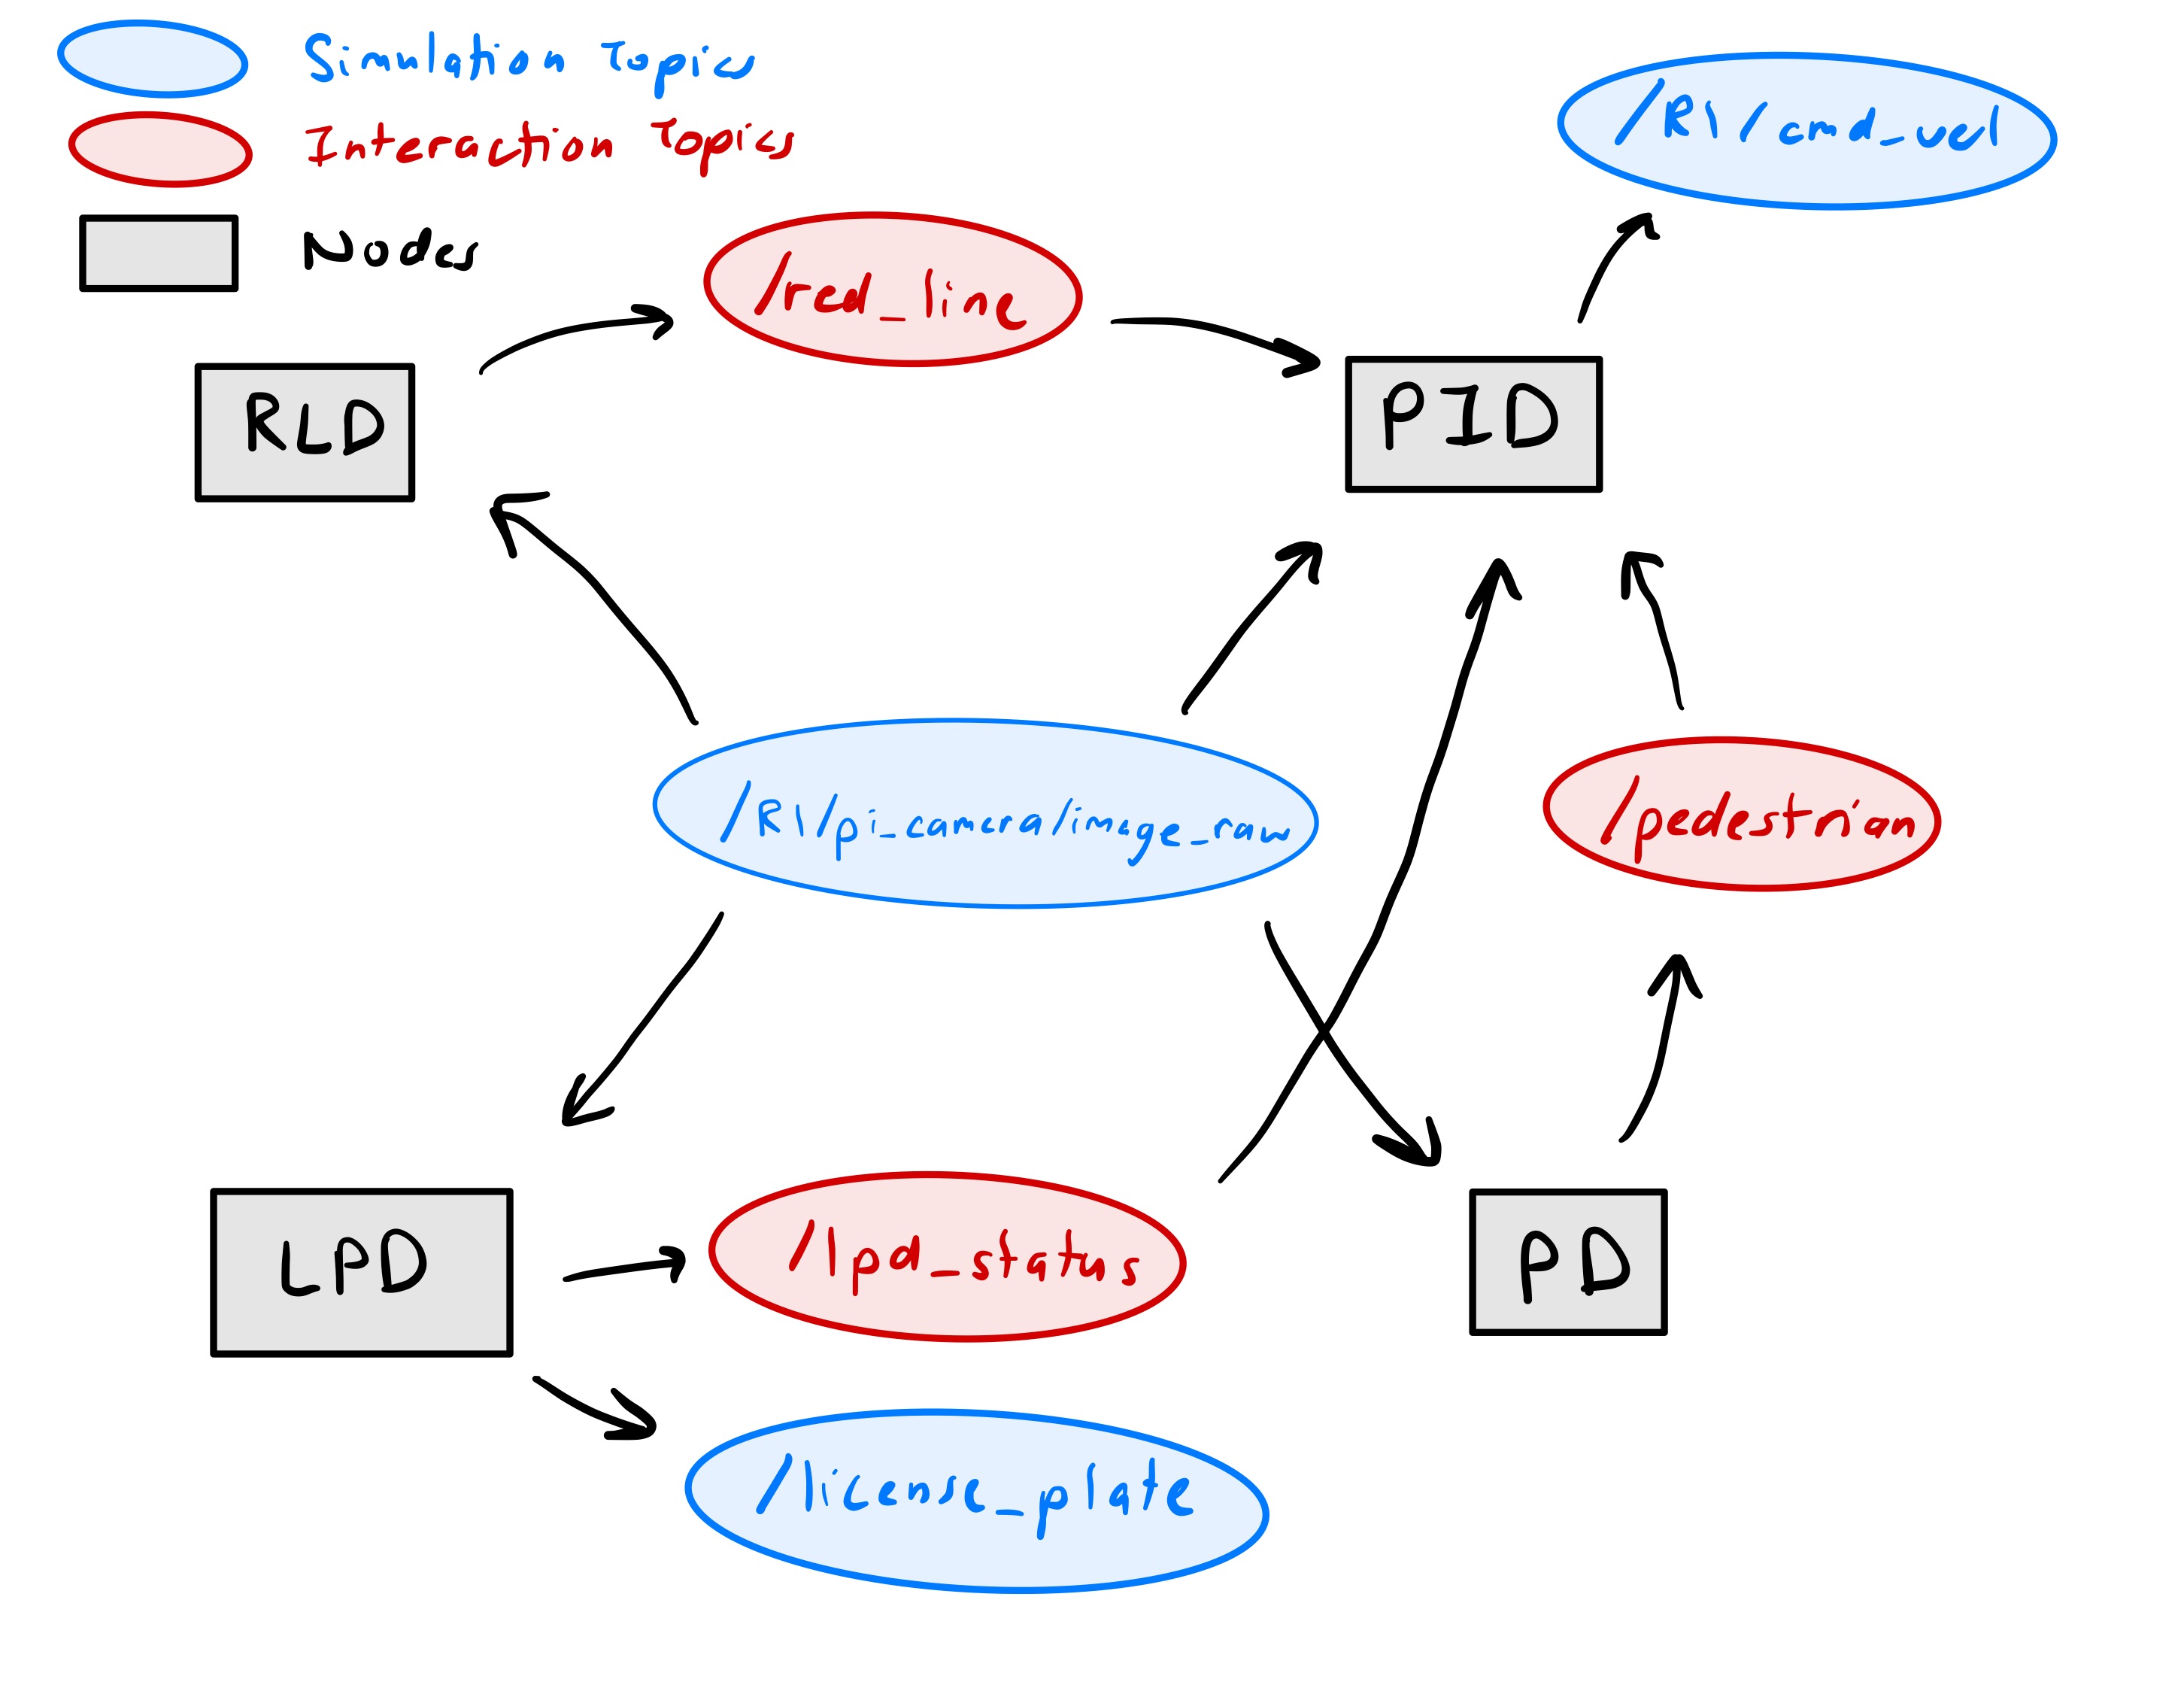 Simulation Topics
Interaction Topics
Nodes
/R1/cmd_vel
/red_line
RLD
PID
/R1/pi_camera/image_raw
/pedestrian
LPD
/lpd_status
PD
/license_plate